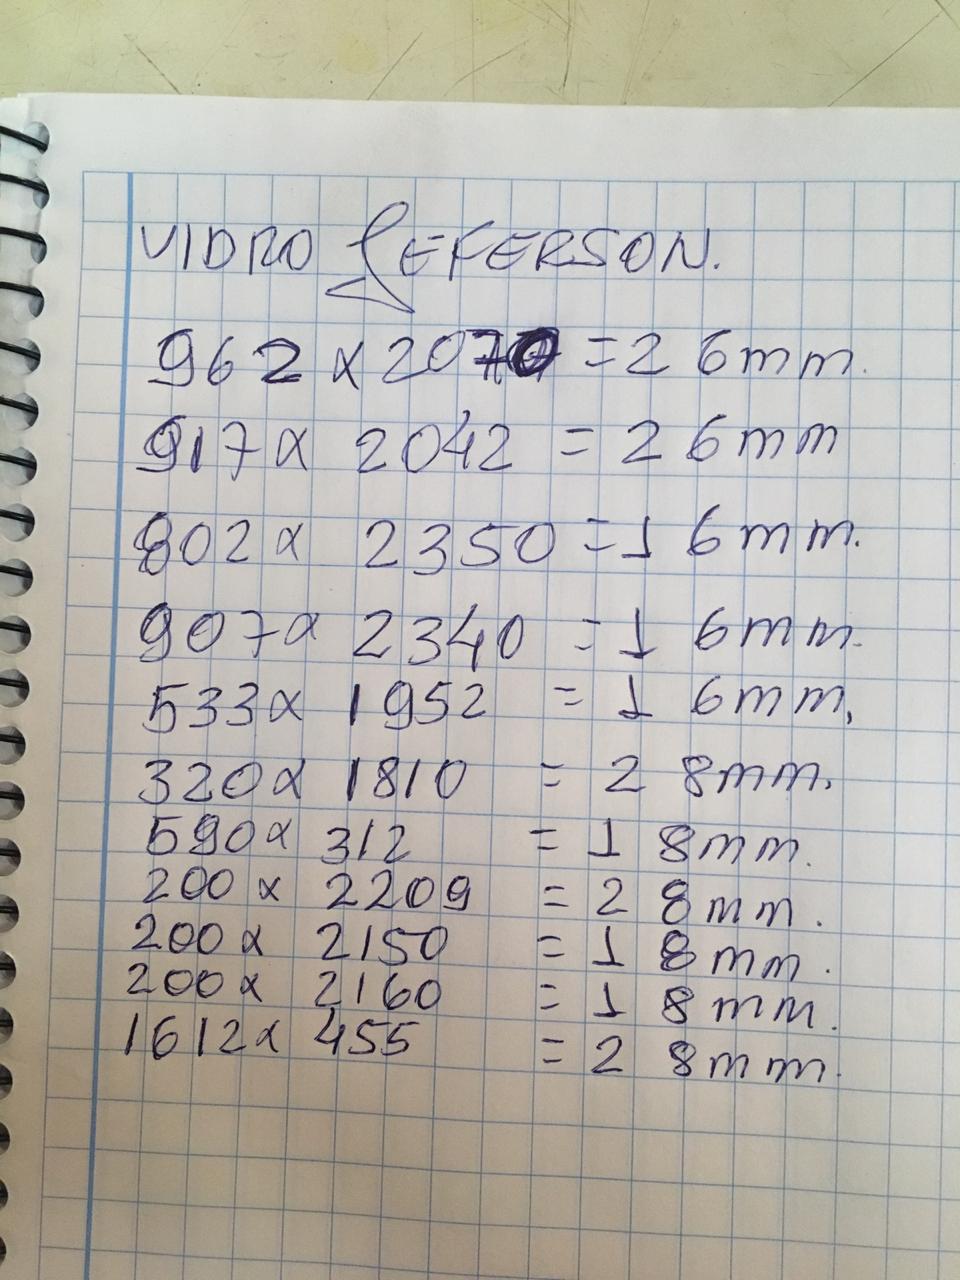 VIDRO JEFERSON.
962 x 2070 = 2 6mm.
917 x 2042 = 2 6mm
802 x 2350 = 1 6mm.
907 x 2340 = 1 6mm.
533 x 1952 = 1 6mm.
320 x 1810 = 2 8mm.
590 x 312 = 1 8mm.
200 x 2209 = 2 8mm.
200 x 2150 = 1 8mm.
200 x 2160 = 1 8mm.
1612 x 455 = 2 8mm.